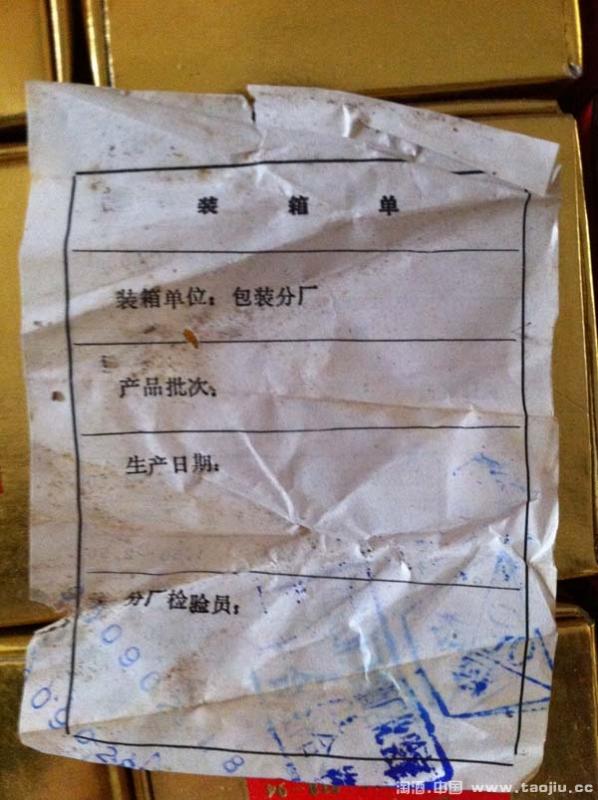 装箱单
装箱单位：包装分厂
产品批次：
生产日期：
分厂检验员：
淘酒.中国 www.taojiu.cc